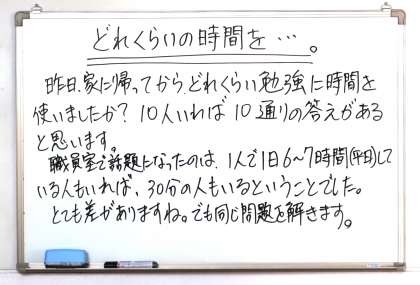 どれくらいの時間を…。
昨日、家に帰ってから、どれくらい勉強に時間を
使いましたか？10人いれば10通りの答えがある
と思います。
職員室で話題になったのは、1人で1日6~7時間(平日)して
いる人もいれば、30分の人もいるということでした。
とても差がありますね。でも同じ問題を解きます。